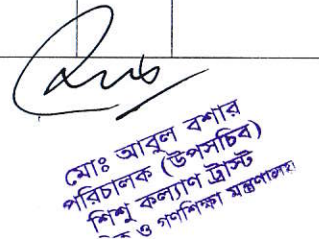 মোঃ আবুল বশার
পরিচালক (উপসচিব)
শিশু কল্যাণ ট্রাস্ট
ও গণশিক্ষা মন্ত্রণালয়